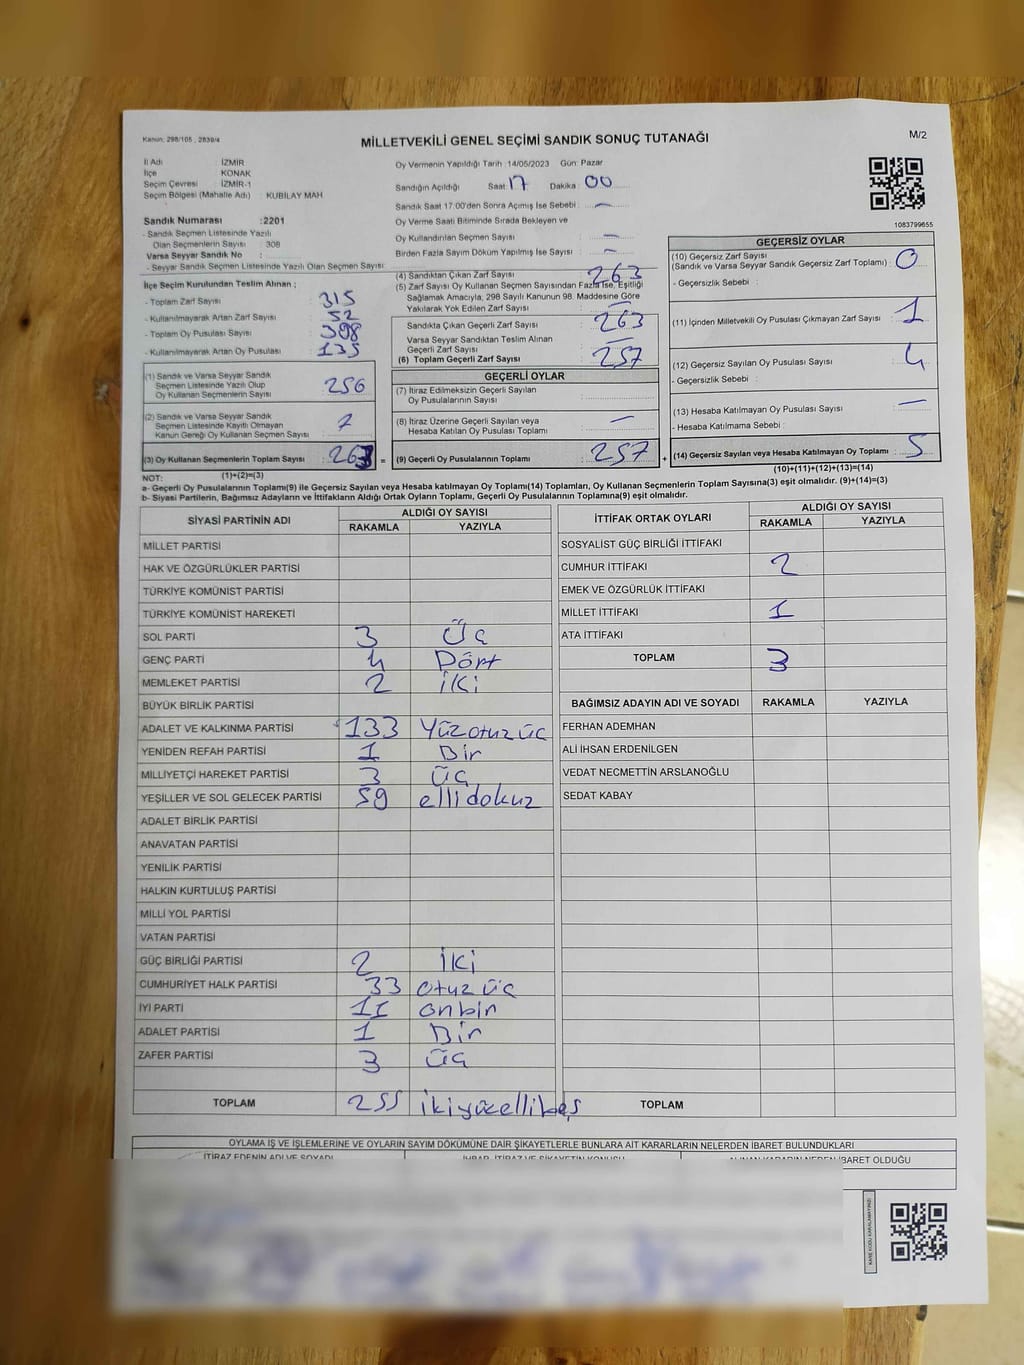 Kanun: 298/105 , 2839/4
MİLLETVEKİLİ GENEL SEÇİMİ SANDIK SONUÇ TUTANAĞI
M/2
İl Adı : İZMİR
İlçe : KONAK
Seçim Çevresi : İZMİR-1
Seçim Bölgesi (Mahalle Adı) : KUBİLAY MAH
Sandık Numarası :2201
- Sandık Seçmen Listesinde Yazılı
Olan Seçmenlerin Sayısı : 308
Varsa Seyyar Sandık No :
- Seyyar Sandık Seçmen Listesinde Yazılı Olan Seçmen Sayısı
İlçe Seçim Kurulundan Teslim Alınan ;
- Toplam Zarf Sayısı : 315
- Kullanılmayarak Artan Zarf Sayısı : 52
- Toplam Oy Pusulası Sayısı : 398
- Kullanılmayarak Artan Oy Pusulası : 135
(1) Sandık ve Varsa Seyyar Sandık
Seçmen Listesinde Yazılı Olup
Oy Kullanan Seçmenlerin Sayısı : 256
(2) Sandık ve Varsa Seyyar Sandık
Seçmen Listesinde Kayıtlı Olmayan
Kanun Gereği Oy Kullanan Seçmen Sayısı : 7
(3) Oy Kullanan Seçmenlerin Toplam Sayısı : 263 =
Oy Vermenin Yapıldığı Tarih :14/05/2023 Gün: Pazar
Sandığın Açıldığı Saat: 17 Dakika : 00
Sandık Saat 17:00'den Sonra Açımış İse Sebebi : —
Oy Verme Saati Bitiminde Sırada Bekleyen ve
Oy Kullandırılan Seçmen Sayısı : —
Birden Fazla Sayım Döküm Yapılmış İse Sayısı : —
(4) Sandıktan Çıkan Zarf Sayısı : 263
(5) Zarf Sayısı Oy Kullanan Seçmen Sayısından Fazla İse, Eşitliği
Sağlamak Amacıyla, 298 Sayılı Kanunun 98. Maddesine Göre
Yakılarak Yok Edilen Zarf Sayısı : —
Sandıkta Çıkan Geçerli Zarf Sayısı : 263
Varsa Seyyar Sandıktan Teslim Alınan
Geçerli Zarf Sayısı : —
(6) Toplam Geçerli Zarf Sayısı : 257
GEÇERLİ OYLAR
(7) İtiraz Edilmeksizin Geçerli Sayılan
Oy Pusulalarının Sayısı :
(8) İtiraz Üzerine Geçerli Sayılan veya
Hesaba Katılan Oy Pusulası Toplamı : —
(9) Geçerli Oy Pusulalarının Toplamı : 257 +
1083799655
GEÇERSİZ OYLAR
(10) Geçersiz Zarf Sayısı
(Sandık ve Varsa Seyyar Sandık Geçersiz Zarf Toplamı) : 0
- Geçersizlik Sebebi :
(11) İçinden Milletvekili Oy Pusulası Çıkmayan Zarf Sayısı : 1
(12) Geçersiz Sayılan Oy Pusulası Sayısı : 4
- Geçersizlik Sebebi :
(13) Hesaba Katılmayan Oy Pusulası Sayısı : —
- Hesaba Katılmama Sebebi :
(14) Geçersiz Sayılan veya Hesaba Katılmayan Oy Toplamı : 5
NOT: (1)+(2)=(3)
(10)+(11)+(12)+(13)=(14)
a- Geçerli Oy Pusulalarının Toplamı(9) ile Geçersiz Sayılan veya Hesaba katılmayan Oy Toplamı(14) Toplamları, Oy Kullanan Seçmenlerin Toplam Sayısına(3) eşit olmalıdır. (9)+(14)=(3)
b- Siyasi Partilerin, Bağımsız Adayların ve İttifakların Aldığı Ortak Oyların Toplamı, Geçerli Oy Pusulalarının Toplamına(9) eşit olmalıdır.
SİYASİ PARTİNİN ADI ALDIĞI OY SAYISI
RAKAMLA YAZIYLA
MİLLET PARTİSİ
HAK VE ÖZGÜRLÜKLER PARTİSİ
TÜRKİYE KOMÜNİST PARTİSİ
TÜRKİYE KOMÜNİST HAREKETİ
SOL PARTİ 3 Üç
GENÇ PARTİ 4 Dört
MEMLEKET PARTİSİ 2 İki
BÜYÜK BİRLİK PARTİSİ
ADALET VE KALKINMA PARTİSİ 133 Yüzotuzüç
YENİDEN REFAH PARTİSİ 1 Bir
MİLLİYETÇİ HAREKET PARTİSİ 3 Üç
YEŞİLLER VE SOL GELECEK PARTİSİ 59 ellidokuz
ADALET BİRLİK PARTİSİ
ANAVATAN PARTİSİ
YENİLİK PARTİSİ
HALKIN KURTULUŞ PARTİSİ
MİLLİ YOL PARTİSİ
VATAN PARTİSİ
GÜÇ BİRLİĞİ PARTİSİ 2 İki
CUMHURİYET HALK PARTİSİ 33 otuz üç
İYİ PARTİ 11 onbir
ADALET PARTİSİ 1 Bir
ZAFER PARTİSİ 3 Üç
TOPLAM 255 ikiyüzellibeş
İTTİFAK ORTAK OYLARI ALDIĞI OY SAYISI
RAKAMLA YAZIYLA
SOSYALİST GÜÇ BİRLİĞİ İTTİFAKI
CUMHUR İTTİFAKI 2
EMEK VE ÖZGÜRLÜK İTTİFAKI
MİLLET İTTİFAKI 1
ATA İTTİFAKI
TOPLAM 3
BAĞIMSIZ ADAYIN ADI VE SOYADI RAKAMLA YAZIYLA
FERHAN ADEMHAN
ALİ İHSAN ERDENİLGEN
VEDAT NECMETTİN ARSLANOĞLU
SEDAT KABAY
TOPLAM
OYLAMA İŞ VE İŞLEMLERİNE VE OYLARIN SAYIM DÖKÜMÜNE DAİR ŞİKAYETLERLE BUNLARA AİT KARARLARIN NELERDEN İBARET BULUNDUKLARI
İTİRAZ EDENİN ADI VE SOYADI İHBAR, İTİRAZ VE ŞİKAYETİN KONUSU ALINAN KARARIN NEDEN İBARET OLDUĞU
KARE KODU KARALAMAYINIZ!